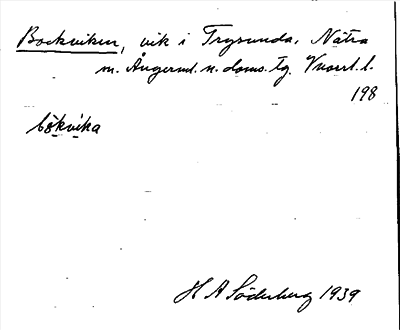 Bockviken, vik i Trysunda, Nätra
sn. Ångerml. n. doms. tg. Vnorrl. l.
198
bökvika
H A Söderberg 1939